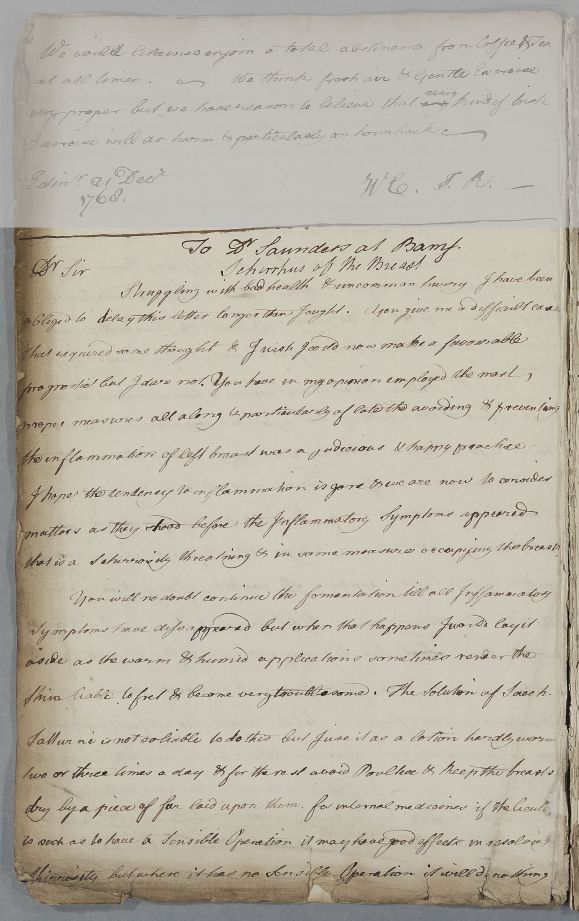 We would likewise enjoin a total abstinence from Coffee & Tea
at all times. We think fresh air & Gentle Exercise
very proper but we have reason to believe that every kind of brisk
Exercise will do harm & particularly on horseback
Edinr. 21 Decr
1768.
W C. J. R. —
To Dr Saunders at Bamf.
Schirrhus of the Breast
Dr Sir
Struggling with bad health & uncommon hurry I have been
obliged to delay this letter longer than I ought. You give me a difficult case
that required some thought & I wish I could now make a favourable
prognostic but I dare not. You have in my opinion employed the most
proper measures all along & particularly of late the avoiding & preventing
the inflammation of left breast was a judicious & happy practise
I hope the tendency to inflammation is gone & we are now to consider
matters as they stood before the Inflammatory Symptoms appeared
that is a Schirrosity threatning & in some measure occupying the breasts.
You will no doubt continue the fomentation till all Inflammatory
Symptoms have disappeared but when that happens I would lay it
aside as the warm & humid applications sometimes render the
Skin liable to fret & become very troublesome. The Solution of Sacch.
Satturni is not so liable to do this but I use it as a lotion hardly warm
two or three times a day & for the rest avoid Poultice & keep the breasts
dry by a piece of fur laid upon them. for internal medicines if the Cicuta
is such as to have a Sensible Operation it may have good effects in resolving
Schirrosity but where it has no sensible Operation it will do nothing